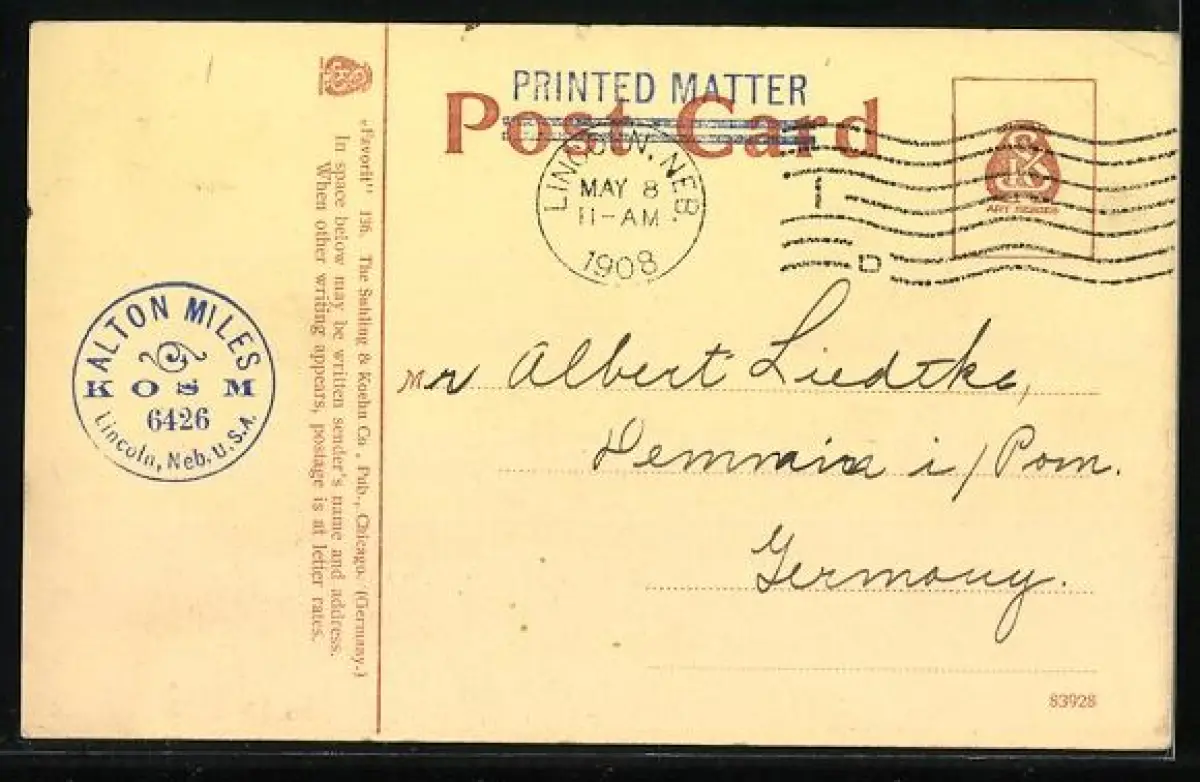 PRINTED MATTER
Post Card
LINCOLN, NEB.
MAY 8
11-AM
1908
1
D
S K
ART SERIES
"Favorit" 136. The Suhling & Koehn Co., Pub., Chicago. (Germany.)
In space below may be written sender's name and address.
When other writing appears, postage is at letter rates.
ALTON MILES
KOSM
6426
Lincoln, Neb. U.S.A.
Mr Albert Liedtke,
i/Pom.
Germany.
83928